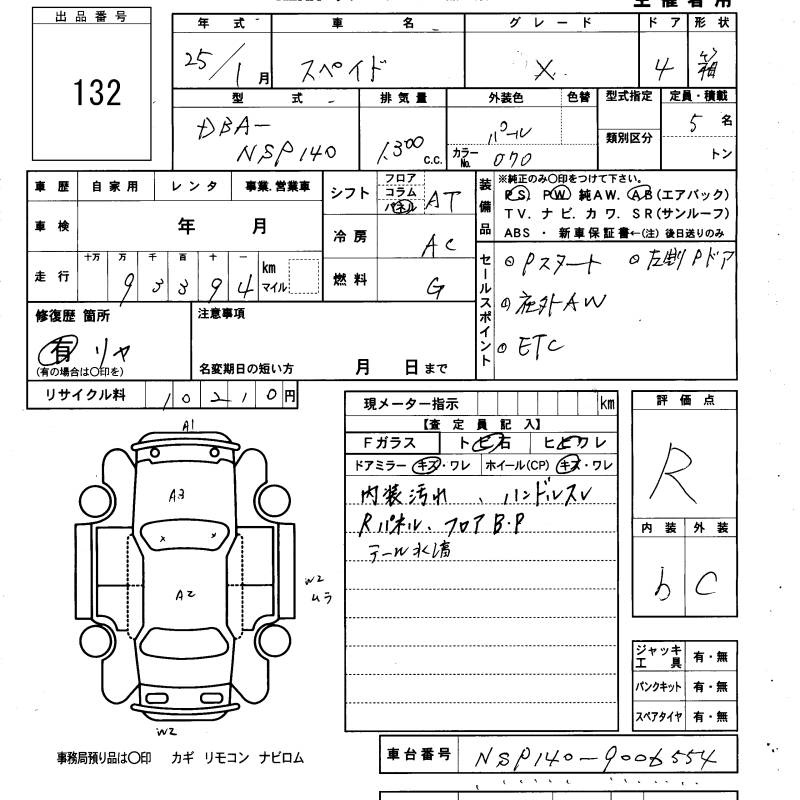 出品番号
132
年式 車名 グレード ドア 形状
25/1月 スペイド X 4 箱
型式 排気量 外装色 色替 型式指定 定員・積載
DBA-
NSP140
1300 c.c.
パール
カラーNo. 070
類別区分
5名
トン
車歴 自家用 レンタ 事業.営業車
車検 年 月
走行 十万 万 千 百 十 一
9 3 3 9 4 km マイル
シフト フロア コラム パネル AT
冷房 AC
燃料 G
装備品
※純正のみ〇印をつけて下さい。
PS. PW 純AW. AB(エアバック)
TV. ナビ. カワ. SR(サンルーフ)
ABS ・ 新車保証書←(注) 後日送りのみ
セールスポイント
Pスタート 左側Pドア
社外AW
ETC
修復歴 箇所
有 リヤ
(有の場合は〇印を)
注意事項
名変期日の短い方 月 日まで
リサイクル料 10210円
現メーター指示 km
【査定員記入】
Fガラス トビ石 ヒビワレ
ドアミラー キズ・ワレ ホイール(CP) キズ・ワレ
内装汚れ、ハンドルスレ
Rパネル、フロアB・P
テール水滴
評価点
R
内装 外装
b C
A1
A3
A2
W2
ムラ
W2
ジャッキ工具 有・無
パンクキット 有・無
スペアタイヤ 有・無
車台番号 NSP140-9006554
事務局預り品は〇印 カギ リモコン ナビロム